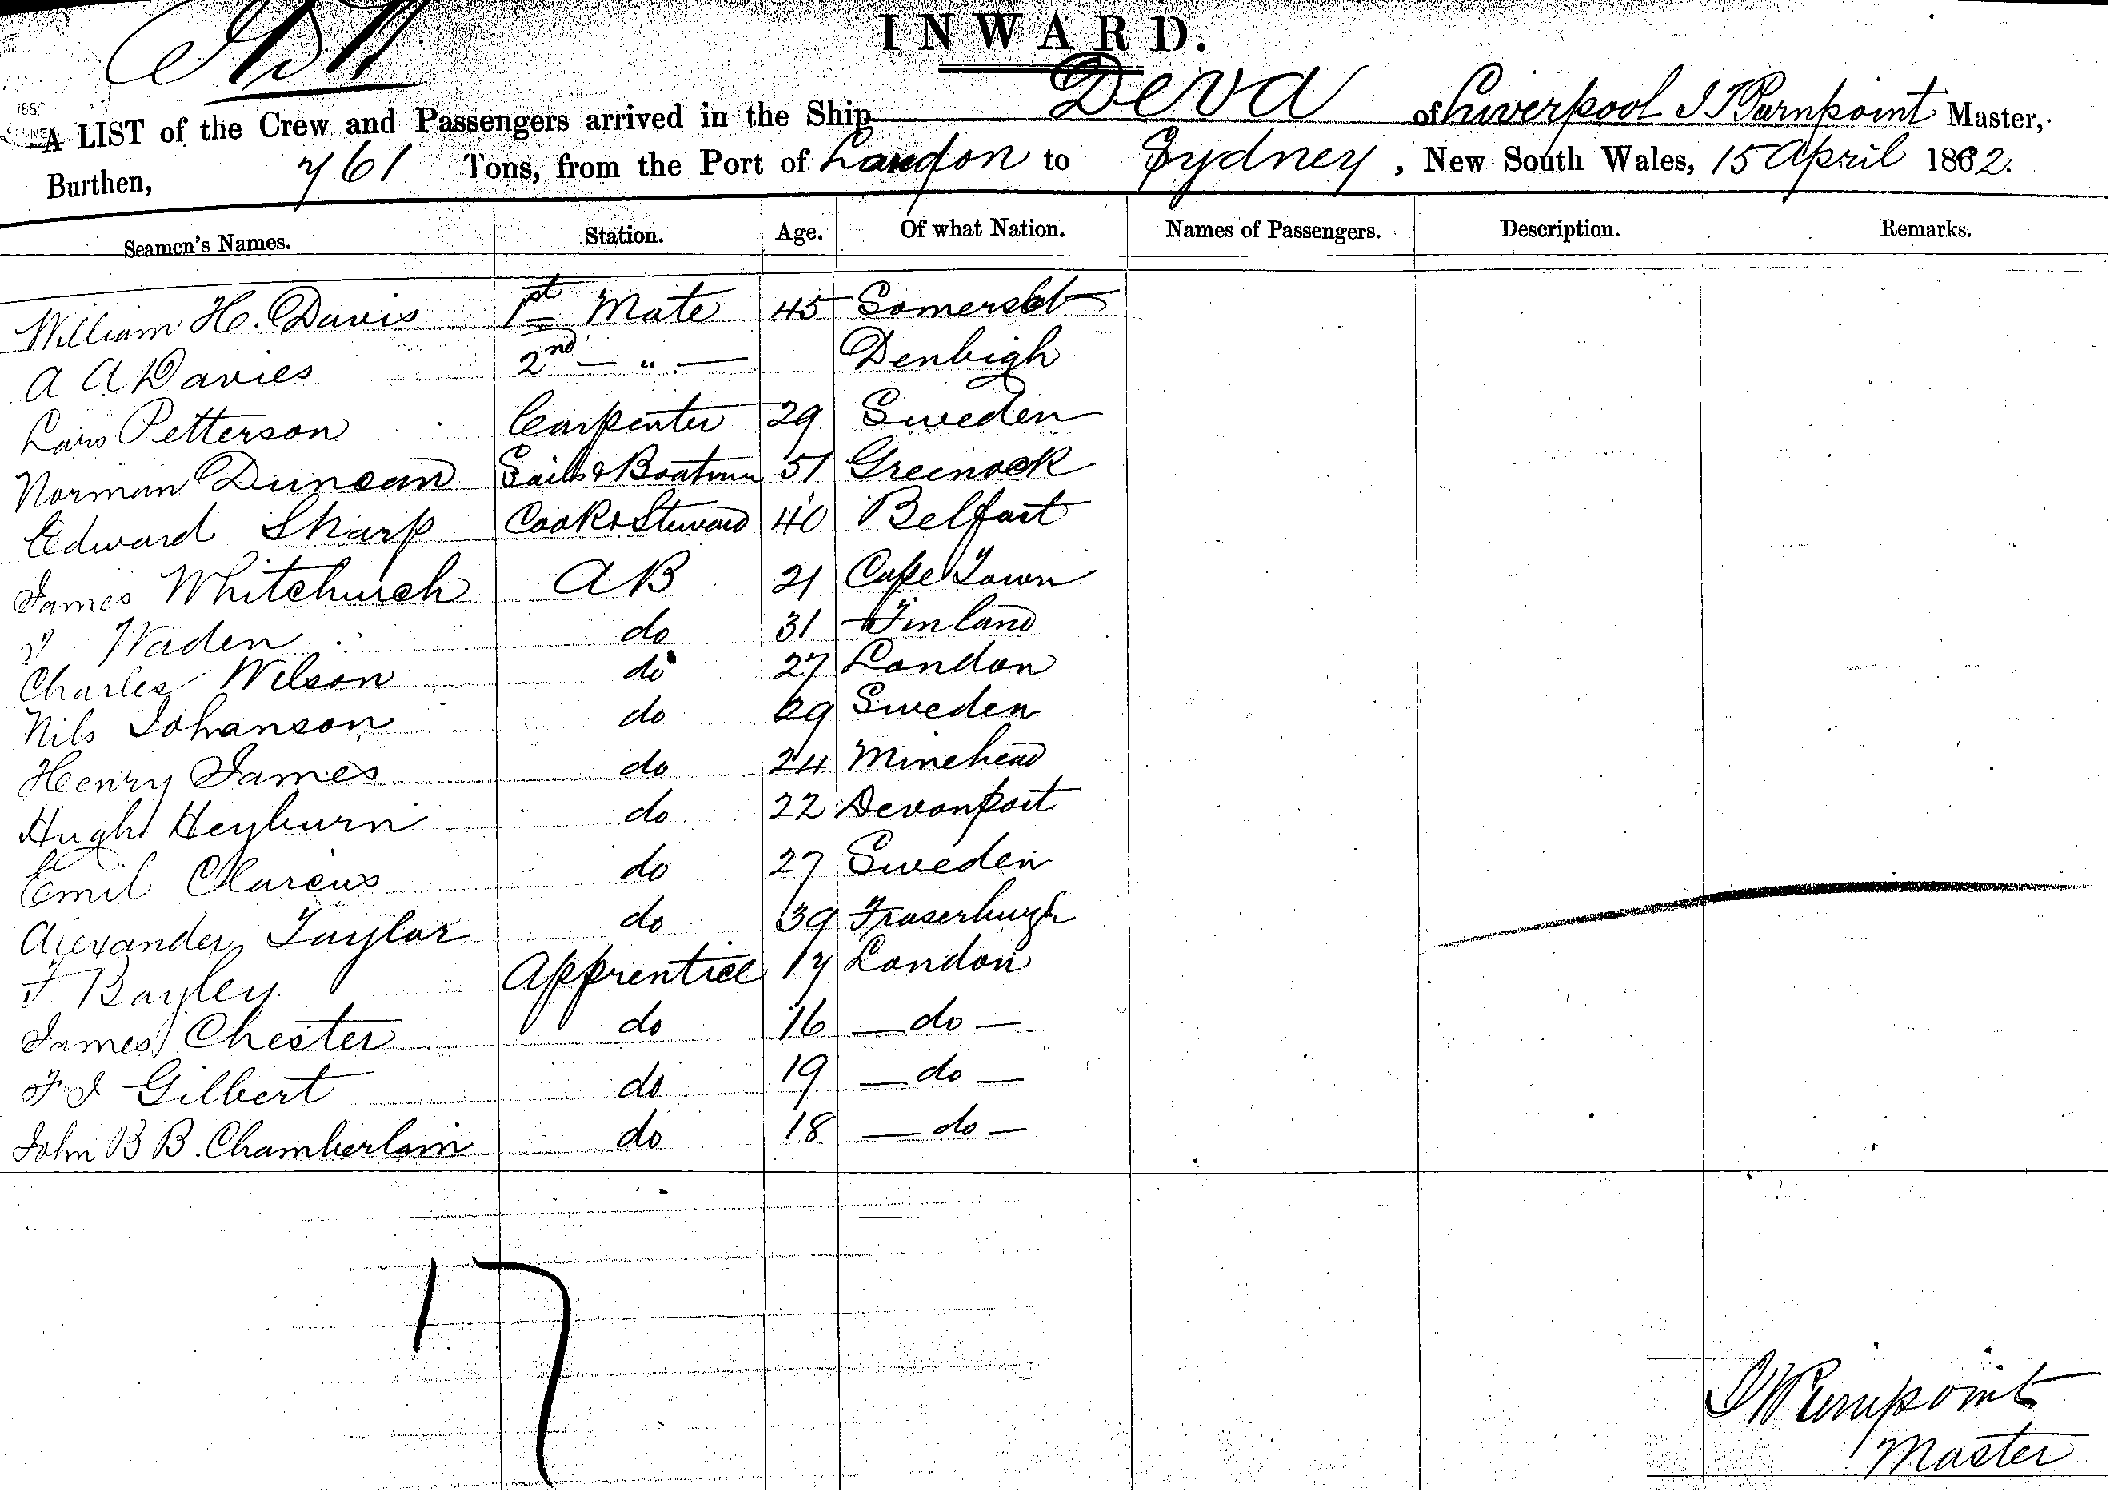 INWARD.
A LIST of the Crew and Passengers arrived in the Ship Deva of Liverpool Master,
Burthen, 761 Tons, from the Port of London to Sydney, New South Wales, 15 April 1862.
Seamen's Names. Station. Age. Of what Nation. Names of Passengers. Description. Remarks.
William H. Davis 1st Mate 45 Somerset
A A Davies 2nd — " — Denbigh
Lars Petterson Carpenter 29 Sweden
Norman Duncan Sails & Boatswn 51 Greenock
Edward Sharp Cook & Steward 40 Belfast
James Whitchurch AB 21 Cape Town
Waden do 31 Finland
Charles Wilson do 27 London
Nils Johanson do 29 Sweden
Henry James do 24 Minehead
Hugh Heyburn do 22 Devonport
Emil Clareus do 27 Sweden
Alexander Taylor do 39 Fraserburgh
F Bayley Apprentice 17 London
James Chester do 16 — do —
F J Gilbert do 19 — do —
John B B. Chamberlain do 18 — do —
17
Master